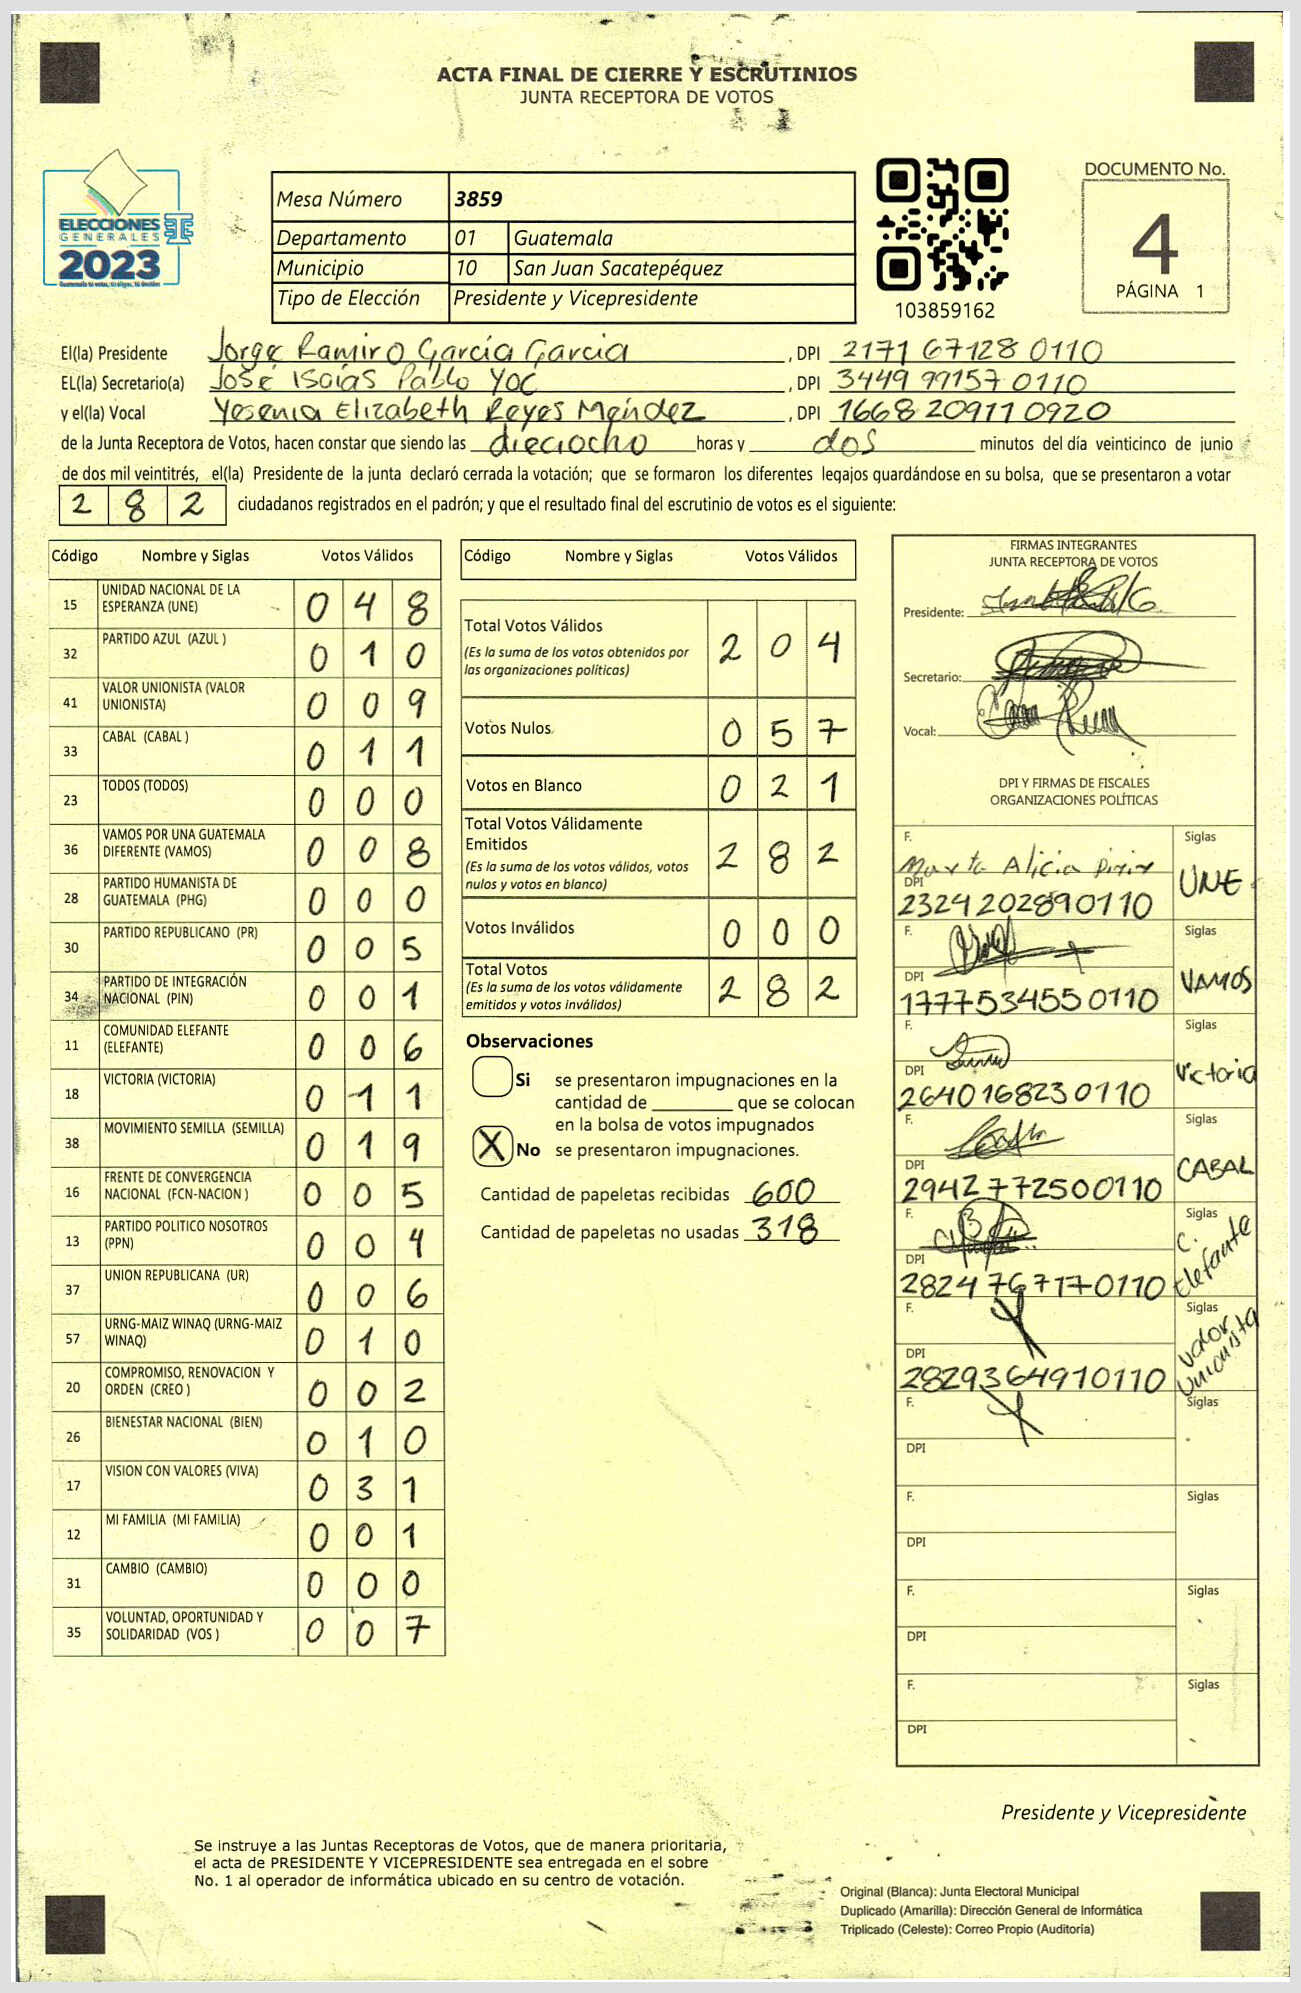 ACTA FINAL DE CIERRE Y ESCRUTINIOS
JUNTA RECEPTORA DE VOTOS
ELECCIONES
GENERALES
2023
Mesa Número 3859
Departamento 01 Guatemala
Municipio 10 San Juan Sacatepéquez
Tipo de Elección Presidente y Vicepresidente
103859162
DOCUMENTO No.
4
PÁGINA 1
El(la) Presidente Jorge Ramiro García Garcia , DPI 2171 67128 0110
EL(la) Secretario(a) José Isaías Pablo Yoc , DPI 3449 99157 0110
y el(la) Vocal Yesenia Elizabeth Reyes Meńdez , DPI 1668 20911 0920
de la Junta Receptora de Votos, hacen constar que siendo las dieciocho horas y dos minutos del día veinticinco de junio
de dos mil veintitrés, el(la) Presidente de la junta declaró cerrada la votación; que se formaron los diferentes legajos guardándose en su bolsa, que se presentaron a votar
2 8 2 ciudadanos registrados en el padrón; y que el resultado final del escrutinio de votos es el siguiente:
Código Nombre y Siglas Votos Válidos
15 UNIDAD NACIONAL DE LA
ESPERANZA (UNE) 0 4 8
32 PARTIDO AZUL (AZUL ) 0 1 0
41 VALOR UNIONISTA (VALOR
UNIONISTA) 0 0 9
33 CABAL (CABAL ) 0 1 1
23 TODOS (TODOS) 0 0 0
36 VAMOS POR UNA GUATEMALA
DIFERENTE (VAMOS) 0 0 8
28 PARTIDO HUMANISTA DE
GUATEMALA (PHG) 0 0 0
30 PARTIDO REPUBLICANO (PR) 0 0 5
34 PARTIDO DE INTEGRACIÓN
NACIONAL (PIN) 0 0 1
11 COMUNIDAD ELEFANTE
(ELEFANTE) 0 0 6
18 VICTORIA (VICTORIA) 0 1 1
38 MOVIMIENTO SEMILLA (SEMILLA) 0 1 9
16 FRENTE DE CONVERGENCIA
NACIONAL (FCN-NACION ) 0 0 5
13 PARTIDO POLITICO NOSOTROS
(PPN) 0 0 4
37 UNION REPUBLICANA (UR) 0 0 6
57 URNG-MAIZ WINAQ (URNG-MAIZ
WINAQ) 0 1 0
20 COMPROMISO, RENOVACION Y
ORDEN (CREO ) 0 0 2
26 BIENESTAR NACIONAL (BIEN) 0 1 0
17 VISION CON VALORES (VIVA) 0 3 1
12 MI FAMILIA (MI FAMILIA) 0 0 1
31 CAMBIO (CAMBIO) 0 0 0
35 VOLUNTAD, OPORTUNIDAD Y
SOLIDARIDAD (VOS ) 0 0 7
Código Nombre y Siglas Votos Válidos
Total Votos Válidos 2 0 4
(Es la suma de los votos obtenidos por
las organizaciones políticas)
Votos Nulos 0 5 7
Votos en Blanco 0 2 1
Total Votos Válidamente
Emitidos 2 8 2
(Es la suma de los votos válidos, votos
nulos y votos en blanco)
Votos Inválidos 0 0 0
Total Votos 2 8 2
(Es la suma de los votos válidamente
emitidos y votos inválidos)
Observaciones
Si se presentaron impugnaciones en la
cantidad de ________ que se colocan
en la bolsa de votos impugnados
X No se presentaron impugnaciones.
Cantidad de papeletas recibidas 600
Cantidad de papeletas no usadas 318
FIRMAS INTEGRANTES
JUNTA RECEPTORA DE VOTOS
Presidente:
Secretario:
Vocal:
DPI Y FIRMAS DE FISCALES
ORGANIZACIONES POLÍTICAS
F. Siglas
Marta Alicia Pirir UNE
DPI
2324202890110
F. Siglas
VAMOS
DPI
1777534550110
F. Siglas
Victoria
DPI
2640168230110
F. Siglas
CABAL
DPI
2942772500110
F. Siglas
C. Elefante
DPI
2824767170110
F. Siglas
Valor Unionista
DPI
2829364910110
F. Siglas
DPI
F. Siglas
DPI
F. Siglas
DPI
F. Siglas
DPI
Presidente y Vicepresidente
Se instruye a las Juntas Receptoras de Votos, que de manera prioritaria,
el acta de PRESIDENTE Y VICEPRESIDENTE sea entregada en el sobre
No. 1 al operador de informática ubicado en su centro de votación.
Original (Blanca): Junta Electoral Municipal
Duplicado (Amarilla): Dirección General de Informática
Triplicado (Celeste): Correo Propio (Auditoría)